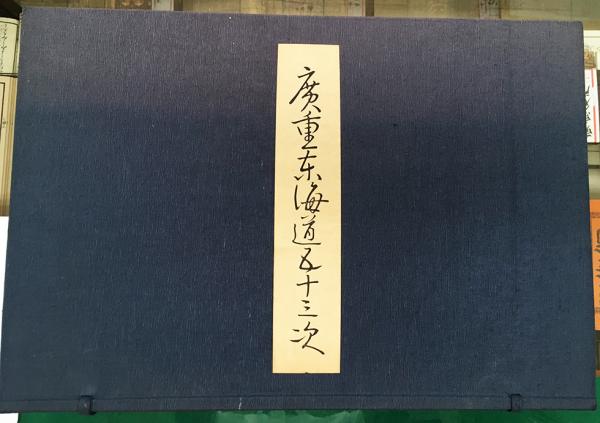 廣重東海道五十三次